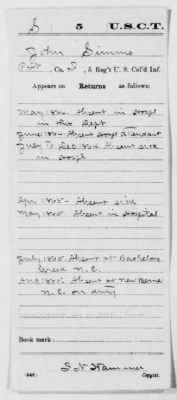 S 5 U.S.C.T.
John Simms
Pvt, Co. I, 5 Reg't U. S. Col'd Inf.
Appears on Returns as follows:
May 1864 Absent in Hospl
in this Dept
June 1864 Absent Hospl Attendant
July to Dec 1864 Absent sick
in Hospl
Apr 1865 Absent sick
May 1865 Absent in Hospital
July 1865 Absent at Bachelors
Creek N.C.
Aug 1865 Absent at New Berne
N.C. on duty
Book mark:
Hammer
(546) Copyist.